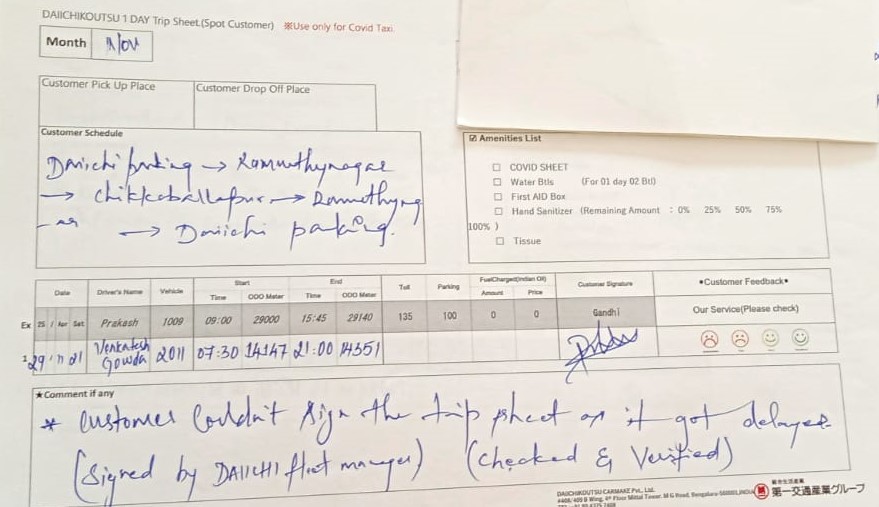 DAIICHIKOUTSU 1 DAY Trip Sheet.(Spot Customer) ※Use only for Covid Taxi.
Month Nov
Customer Pick Up Place Customer Drop Off Place
Customer Schedule
Daiichi parking → Rammuthynagar
→ Chikkaballapur → Ramuthynag
-ar → Daiichi parking.
☑ Amenities List
☐ COVID SHEET
☐ Water Btls (For 01 day 02 Btl)
☐ First AID Box
☐ Hand Sanitizer (Remaining Amount : 0% 25% 50% 75%
100% )
☐ Tissue
Date Driver's Name Vehicle Start End Toll Parking FuelCharged(Indian Oil) Customer Signature •Customer Feedback•
Time ODO Meter Time ODO Meter Amount Price
Ex 25 / Apr Sat Prakash 1009 09:00 29000 15:45 29140 135 100 0 0 Gandhi Our Service(Please check)
1 29 11 21 Venkatesh Gowda 2011 07:30 14147 21:00 14351
★Comment if any
* Customer Couldn't sign the trip sheet as it got delayed.
(Signed by DAIICHI fleet manager) (Checked & Verified)
DAIICHIKOUTSU CARMAKE Pvt., Ltd.
#408/409 B Wing, 4th Floor Mittal Tower, M G Road, Bengaluru-560001, INDIA
第一交通産業グループ